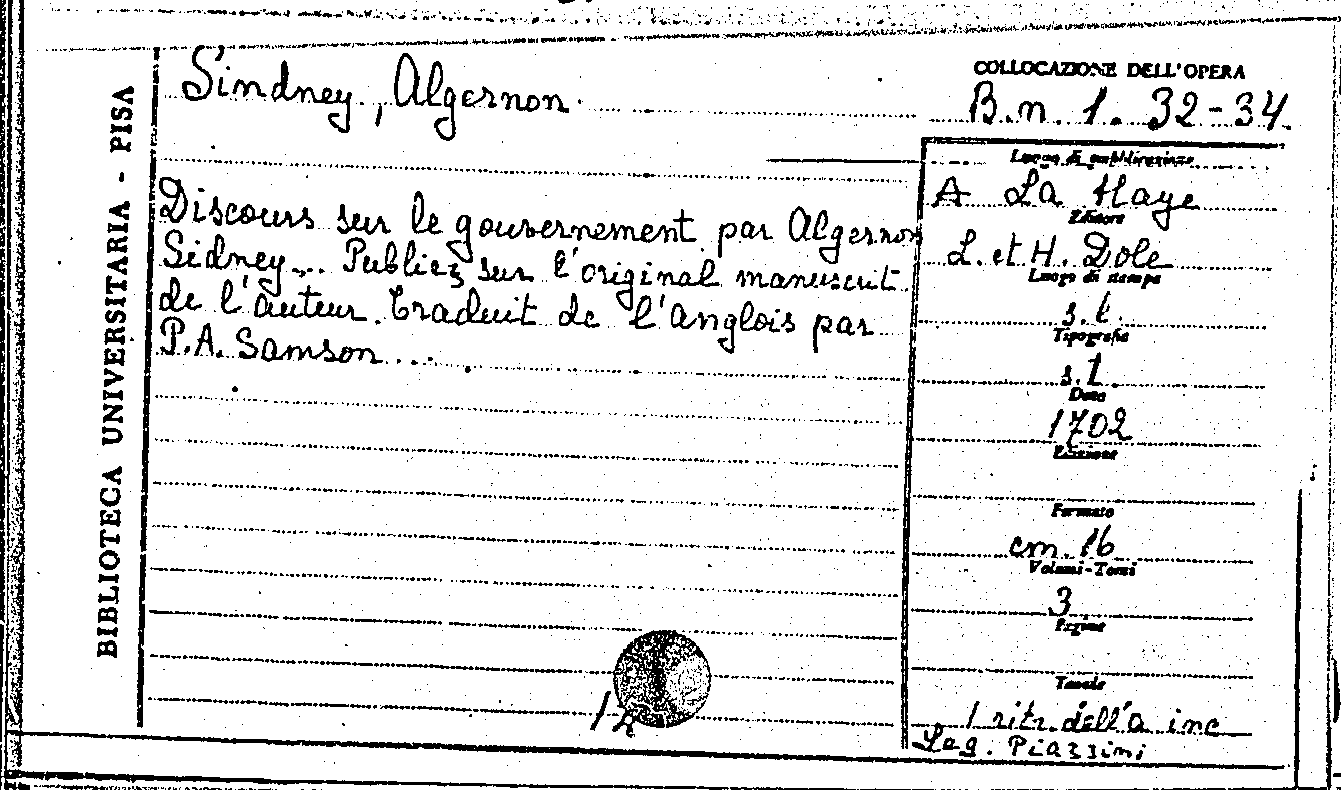 BIBLIOTECA UNIVERSITARIA - PISA
Sindney, Algernon.
COLLOCAZIONE DELL'OPERA
B.n. 1. 32-34
Discours sur le gouvernement par Algernon
Sidney... Publiez sur l'original manuscrit
de l'auteur. Traduit de l'anglois par
P.A. Samson...
Luogo di pubblicazione
A La Haye
Editore
L. et H. Dole
Luogo di stampa
s.l.
Tipografia
s.t.
Data
1702
Edizione
Formato
cm. 16
Volumi-Tomi
3
Pagine
Tavole
1 ritr. dell'a inc
Leg. Piazzini